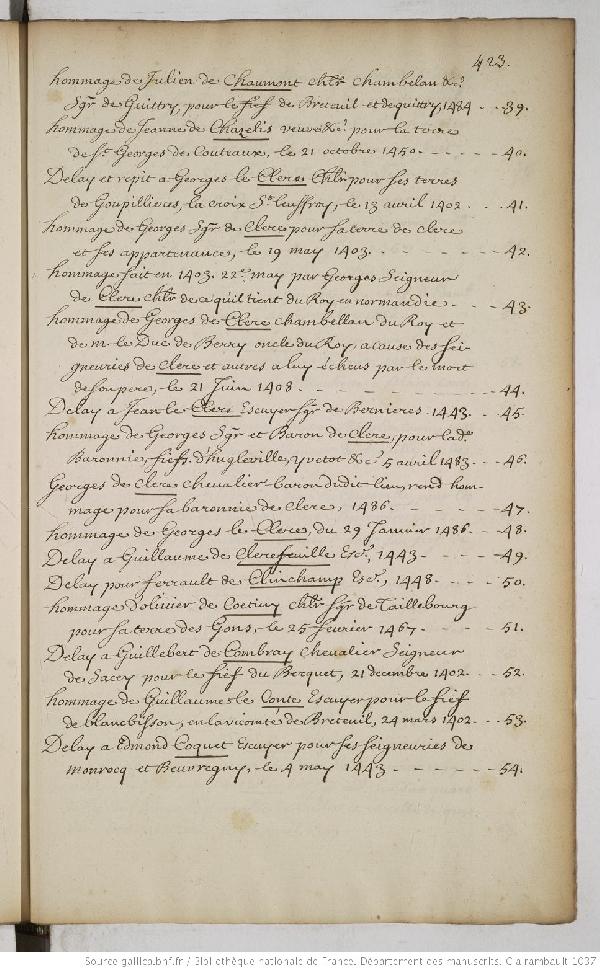 423.
hommage de Julien de Chaumont chlr chambelan &c.
Sgr de Guittry, pour le fief de Breteuil et de quittry, 1484 - - 39.
hommage de Jeanne de Chazelis veuve &c. pour la terre
de St. Georges de Coutraux, le 21 octobre 1450 - - - - - 40.
Delay et repit a Georges le Clere Chlr pour ses terres
de Goupillieres, la croix St. leuffroy, le 13 avril 1402 - - - 41.
hommage de Georges Sgr de Clere pour sa terre de clere
et ses appartenances, le 19 may 1403. - - - - - - - 42.
hommage fait en 1403. 22e. may par Georges Seigneur
de Clere chlr de ce qu'il tient du Roy en normandie - - - 43.
hommage de Georges de Clere chambellan du Roy et
de mr. le Duc de Berry oncle du Roy, a cause des sei-
gneuries de clere et autres a luy échues par la mort
de son pere, le 21 Juin 1408 - - - - - - - - - 44.
Delay a Jean le Clerc Escuyer Sgr de Bernieres. 1443. - - 45.
hommage de Georges Sgr et Baron de Clere, pour lade.
Baronnie, fiefs d'hugleville, yvetot &c. 5 avril 1483. - - 46.
Georges de Clere chevalier baron dudit lieu, rend hom-
mage pour sa baronnie de Clere, 1486 - - - - - - 47.
hommage de Georges le Clere, du 29 Janvier 1486 - - 48.
Delay a Guillaume de Clerefeuille Escr. 1443 - - - - - 49.
Delay pour ferrault de Clinchamp Escr. 1448. - - - - 50.
hommage d'olivier de Coetivy chlr Sgr de Taillebourg
pour sa terre des Gons, le 25 février 1467. - - - - - 51.
Delay a Guillebert de Combray chevalier Seigneur
de Sacey pour le fief du Becquet, 21 decembre 1402 - - 52.
hommage de Guillaume le Conte Escuyer pour le fief
de blancbisson, en la vicomté de Breteuil, 24 mars 1402 - - 53.
Delay a Edmond Coquet Escuyer pour ses seigneuries de
monrocq et Beuvregny, le 4 may 1443 - - - - - - 54.
Source gallica.bnf.fr / Bibliothèque nationale de France. Département des manuscrits. Clairambault 1037